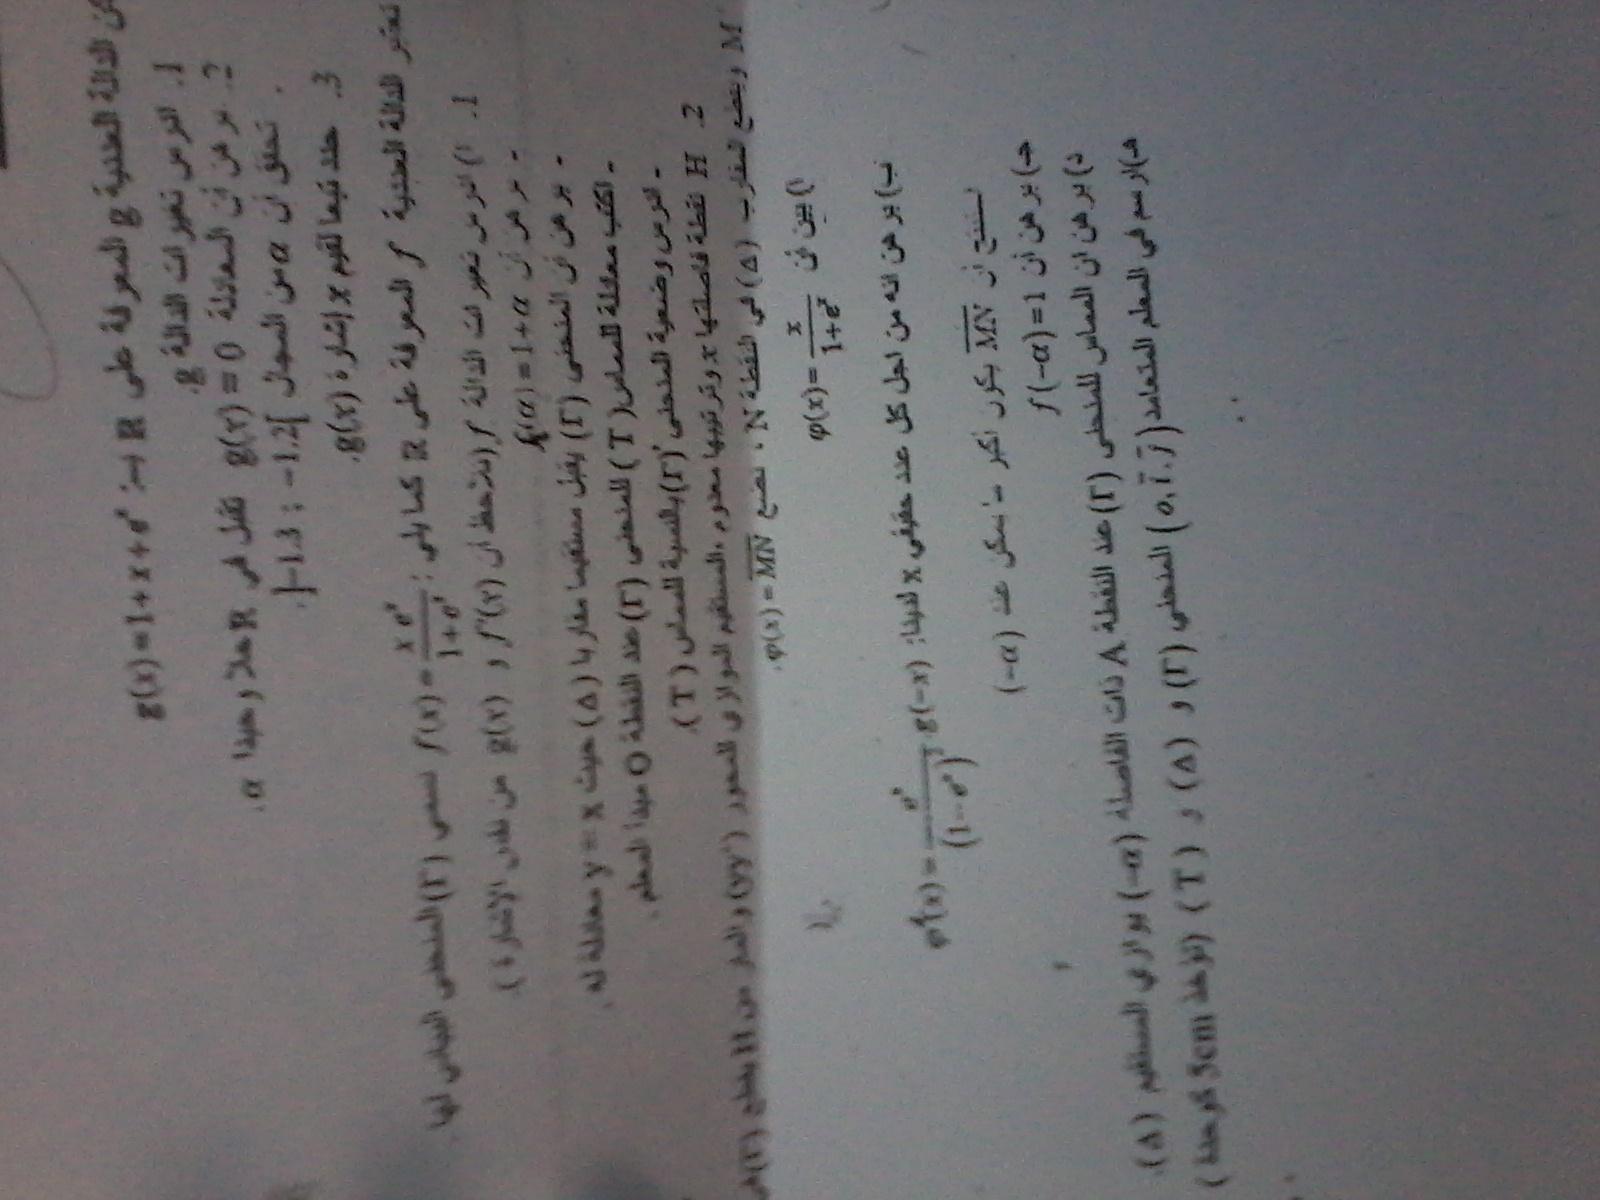 الدالة العددية g المعرفة على R بـ: g(x) = 1 + x + eˣ
1. ادرس تغيرات الدالة g.
2. برهن أن المعادلة g(x) = 0 تقبل في R حلا وحيدا α.
تحقق أن α من المجال ]-1.3 ; -1.2[.
3. حدد تبعا لقيم x إشارة g(x).
نعتبر الدالة العددية f المعرفة على R كما يلي: f(x) = x eˣ / (1 + eˣ) نسمي (Γ) المنحنى البياني لها
1. ا) ادرس تغيرات الدالة f (لاحظ ان f'(x) و g(x) من نفس الإشارة).
- برهن أن f(α) = 1 + α
- برهن أن المنحنى (Γ) يقبل مستقيما مقاربا (Δ) حيث y = x معادلة له.
- اكتب معادلة المماس (T) للمنحنى (Γ) عند النقطة O مبدا المعلم.
- ادرس وضعية المنحنى (Γ) بالنسبة للمماس (T).
2. H نقطة فاصلتها x وترتيبها معدوم، المستقيم الموازي للمحور (yy') والمار من H يقطع (Γ) في
M ويقطع المقارب (Δ) في النقطة N، نضع φ(x) = MN.
ا) بين أن φ(x) = x / (1 + eˣ)
ب) برهن انه من اجل كل عدد حقيقي x لدينا: φ'(x) = eˣ / (1 + eˣ)² g(-x)
نستنتج أن MN يكون أكبر ما يمكن عند (-α)
جـ) برهن أن f(-α) = 1
د) برهن ان المماس للمنحنى (Γ) عند النقطة A ذات الفاصلة (-α) يوازي المستقيم (Δ).
هـ) ارسم في المعلم المتعامد (o, i, j) المنحنى (Γ) و (Δ) و (T) (نأخذ 5cm كوحدة)